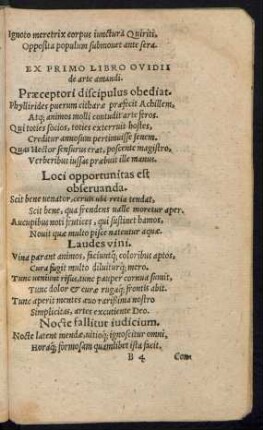 Ignoto meretrix corpus iunctura Quiriti,
Opposita populum submouet ante sera.
EX PRIMO LIBRO OVIDII
de arte amandi.
Præceptori discipulus obediat.
Phyllirides puerum citharæ præfecit Achillem,
Atq; animos molli contudit arte feros.
Qui toties socios, toties exterruit hostes,
Creditur annosum pertimuisse senem.
Quas Hector sensurus erat, poscente magistro,
Verberibus iussas præbuit ille manus.
Loci opportunitas est
obseruanda.
Scit bene uenator, ceruis ubi retia tendat,
Scit bene, qua frendens ualle moretur aper.
Aucupibus noti frutices, qui sustinet hamos,
Nouit quæ multo pisce natentur aquæ.
Laudes vini.
Vina parant animos, faciuntq; coloribus aptos,
Cura fugit multo diluiturq; mero.
Tunc ueniunt risus, tunc pauper cornua sumit,
Tunc dolor & curæ rugaq; frontis abit.
Tunc aperit mentes æuo rarissima nostro
Simplicitas, artes excutiente Deo.
Nocte fallitur iudicium.
Nocte latent mendæ, uitioq; ignoscitur omni,
Horaq; formosam quamlibet ista facit.
B 4 Com